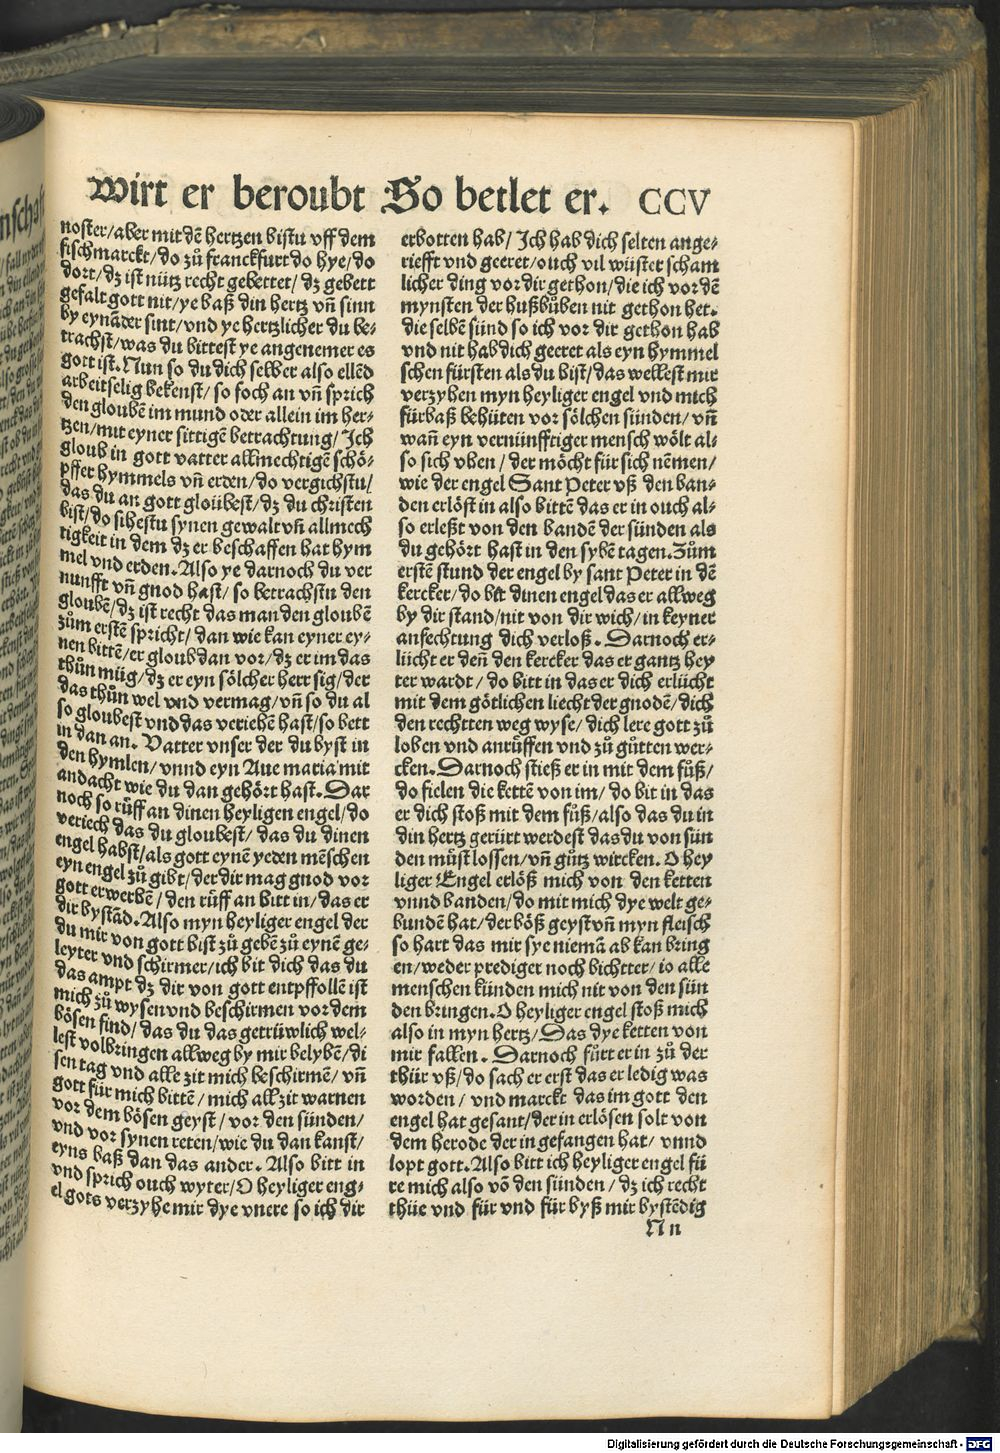 Wirt er beroubt So betlet er. CCV
noster/aber mit dē hertzen bistu vff dem
fischmarckt/do zů franckfurt do hye/do
dort/dz ist nütz recht gebettet/dz gebett
gefalt gott nit/ye baß din hertz vn̄ sinn
by eynāder sint/vnd ye hertzlicher du be-
trachst/was du bittest ye angenemer es
gott ist. Nun so du dich selber also ellēd
arbeitselig bekenst/so foch an vn̄ sprich
den gloubē im mund oder allein im her-
tzen/mit eyner sittigē betrachtung/Ich
gloub in gott vatter allmechtigē schö-
pffer hymmels vn̄ erden/do vergichstu/
das du an gott gloübest/dz du christen
bist/do sihestu synen gewalt vn̄ allmech
tigkeit in dem dz er beschaffen hat hym
mel vnd erden. Also ye darnoch du ver
nunfft vn̄ gnod hast/so betrachstu den
gloubē/dz ist recht das man den gloubē
zům erstē spricht/dan wie kan eyner ey-
nen bittē/er gloub dan vor/dz er im das
thůn müg/dz er eyn sölcher herr sig/der
das thůn wel vnd vermag/vn̄ so du al
so gloubest vnd das veriebē hast/so bett
in dan an. Vatter vnser der du byst in
den hymlen/vnnd eyn Aue maria mit
andacht wie du dan gehört hast. Dar
noch so rüff an dinen heyligen engel/do
veriech das du gloubest/das du dinen
engel habst/als gott eynē yeden mēschen
eyn engel zů gibt/der dir mag gnod vor
gott erwerbē/den rüff an bitt in/das er
dir bystād. Also myn heyliger engel der
du mir von gott bist zů gebē zů eynē ge-
leyter vnd schirmer/ich bit dich das du
das ampt dz dir von gott entpffollē ist
mich zů wysen vnd beschirmen vor dem
bösen find/das du das getrüwlich wel-
lest volbringen allweg by mir belyben/di
sen tag vnd alle zit mich beschirmē/vn̄
gott für mich bittē/mich allzit warnen
vor dem bösen geyst/vor den sünden/
vnd vor synen reten/wie du dan kanst/
eyns baß dan das ander. Also bitt in
vnd sprich ouch wyter/O heyliger eng-
el gots verzyhe mir dye vnere so ich dir
erbotten hab/Ich hab dich selten ange-
riefft vnd geeret/ouch vil wüster scham
licher ding vor dir gethon/die ich vor dē
mynsten der hußbůben nit gethon het.
die selbē sünd so ich vor dir gethon hab
vnd nit hab dich geeret als eyn hymmel
schen fürsten als du bist/das wellest mir
verzyhen myn heyliger engel vnd mich
fürbaß behüten vor sölchen sünden/vn̄
wan̄ eyn vernünfftiger mensch wölt al-
so sich vben/der möcht für sich nēmen/
wie der engel Sant Peter vß den ban-
den erlöst in also bittē das er in ouch al-
so erleßt von den bandē der sünden als
du gehört hast in den sybē tagen. Zům
erstē stund der engel by sant Peter in dē
kercker/do bit dinen engel das er allweg
by dir stand/nit von dir wich/in keyner
anfechtung dich verloß. Darnoch er-
lücht er den̄ den kercker das er gantz hey
ter wardt/do bitt in das er dich erlücht
mit dem götlichen liecht der gnodē/dich
den rechtten weg wyse/dich lere gott zů
loben vnd anrüffen vnd zů gůtten wer-
cken. Darnoch stieß er in mit dem fůß/
do fielen die kettē von im/do bit in das
er dich stoß mit dem fůß/also das du in
din hertz gerürt werdest das du von sün
den můst lossen/vn̄ gůtz wircken. O hey
liger Engel erlöß mich von den ketten
vnnd banden/do mit mich dye welt ge-
bundē hat/der böß geyst vn̄ myn fleisch
so hart das mir sye niemā ab kan bring
en/weder prediger noch bichtter/io alle
menschen künden mich nit von den sün
den bringen. O heyliger engel stoß mich
also in myn hertz/Das dye ketten von
mir fallen. Darnoch fůrt er in zů der
thür vß/do sach er erst das er ledig was
worden/vnd marckt das im gott den
engel hat gesant/der in erlösen solt von
dem herode der in gefangen hat/vnnd
lopt gott. Also bitt ich heyliger engel fü
re mich also vō den sünden/dz ich recht
thüe vnd für vnd für byß mir bystēdig
Nn
Digitalisierung gefördert durch die Deutsche Forschungsgemeinschaft - DFG